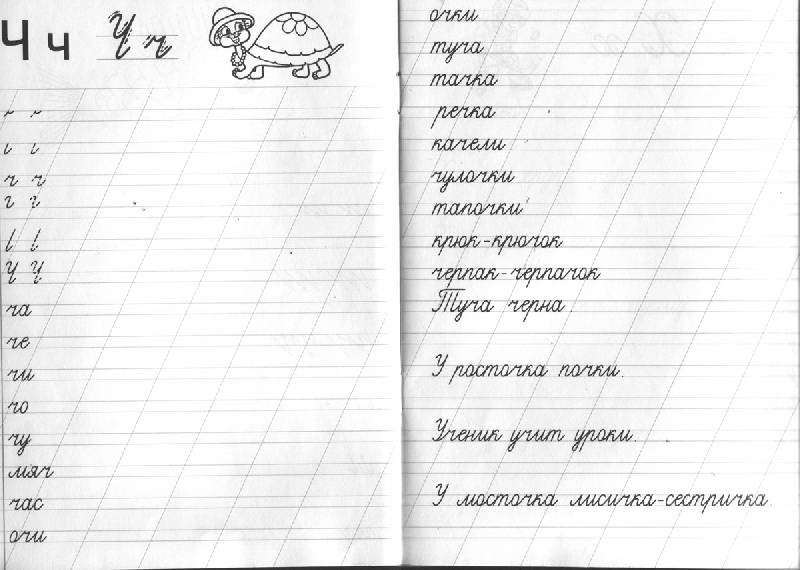 Ч ч Ч ч
ч ч
Ч Ч
ча
че
чи
чо
чу
мяч
час
очи
очки
туча
тачка
речка
качели
чулочки
тапочки
крюк-крючок
черпак-черпачок
Туча черна.
У росточка почки.
Ученик учит уроки.
У мосточка лисичка-сестричка.